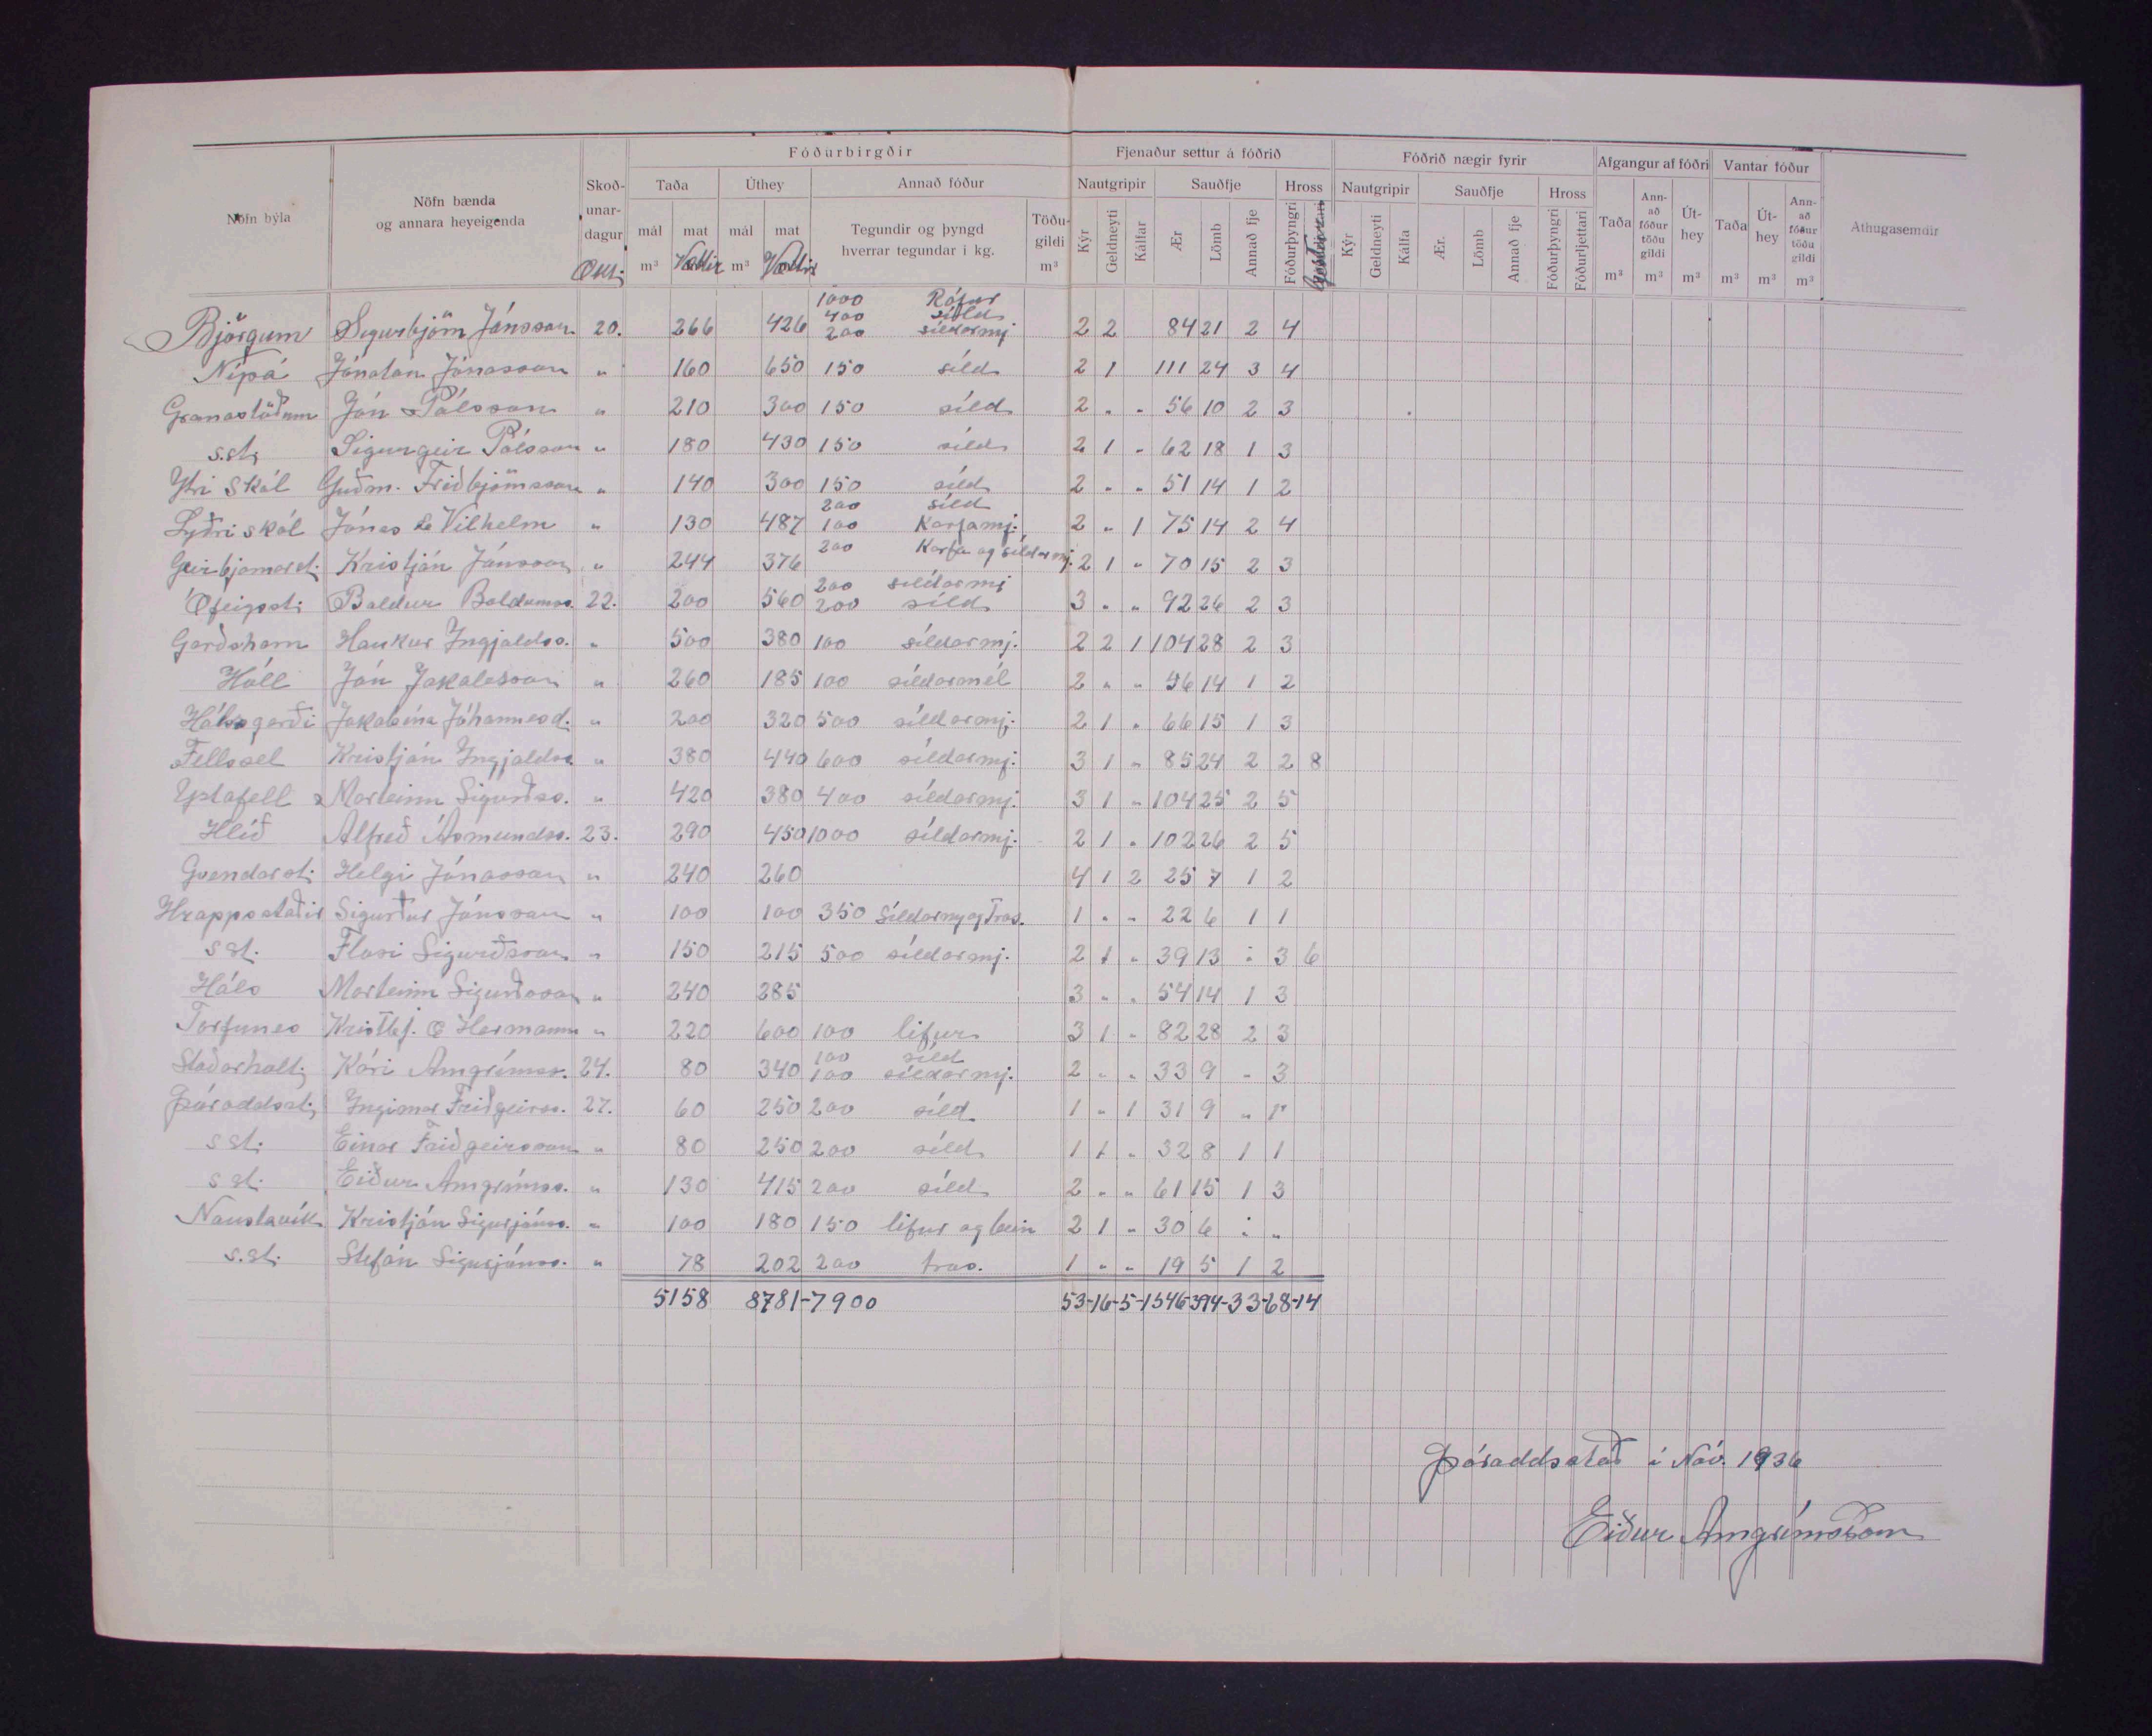 Nöfn býla | Nöfn bænda og annara heyeigenda | Skoðunardagur Okt. | Fóðurbirgðir | Fjenaður settur á fóðrið | Fóðrið nægir fyrir | Afgangur af fóðri | Vantar fóður | Athugasemdir
Taða | Úthey | Annað fóður | Nautgripir | Sauðfje | Hross | Nautgripir | Sauðfje | Hross | Taða m³ | Annað fóður töðugildi m³ | Úthey m³ | Taða m³ | Úthey m³ | Annað fóður töðugildi m³
mál m³ | mat | mál m³ | mat | Tegundir og þyngd hverrar tegundar í kg. | Töðugildi m³ | Kýr | Geldneyti | Kálfar | Ær | Lömb | Annað fje | Fóðurþyngri | Kýr | Geldneyti | Kálfa | Ær. | Lömb | Annað fje | Fóðurþyngri | Fóðurljettari
1000 Rófur
400 síld
Björgum Sigurbjörn Jónsson 20. 266 426 200 síldarmj 2 2 84 21 2 4
Nípá Jónatan Jónasson " 160 650 150 síld 2 1 111 24 3 4
Granastöðum Jón Pálsson " 210 300 150 síld 2 " " 56 10 2 3
s.st. Sigurgeir Pálsson " 180 430 150 síld 2 1 " 62 18 1 3
Ytri Skál Guðm. Friðbjörnsson " 140 300 150 síld 2 " " 51 14 1 2
200 síld
Syðri skál Jónas & Vilhelm " 130 487 100 Karfamj. 2 " 1 75 14 2 4
Geirbjarnarst. Kristján Jónsson " 244 376 200 Karfa og síldarmj. 2 1 " 70 15 2 3
200 síldarmj
Ófeigsst. Baldur Baldvinss. 22. 200 560 200 síld 3 " " 92 26 2 3
Garðshorn Haukur Ingjaldss. " 500 380 100 síldarmj. 2 2 1 104 28 2 3
Hóll Jón Jakobsson " 260 185 100 síldarmél 2 " " 56 14 1 2
Hálsgerði Jakobína Jóhannesd. " 200 320 500 síldarmj. 2 1 " 66 15 1 3
Fellssel Kristján Ingjaldss. " 380 440 600 síldarmj. 3 1 " 85 24 2 2 8
Ystafell Marteinn Sigurðss. " 420 380 400 síldarmj. 3 1 " 104 25 2 5
Hlíð Alfreð Ásmundss. 23. 290 450 1000 síldarmj. 2 1 " 102 26 2 5
Gvendarst. Helgi Jónasson " 240 260 4 1 2 25 7 1 2
Hrappsstaðir Sigurður Jónsson " 100 100 350 Síldarmj og Tros. 1 " " 22 6 1 1
s st. Flosi Sigurðsson " 150 215 500 síldarmj. 2 1 " 39 13 " 3 6
Háls Marteinn Sigurðsson " 240 285 3 " " 54 14 1 3
Torfunes Kristlej. & Hermann " 220 600 100 lifur 3 1 " 82 28 2 3
100 síld
Staðarholt. Kári Arngrímss. 24. 80 340 100 síldarmj. 2 " " 33 9 " 3
Þóroddsst. Ingimar Friðgeirss. 27. 60 250 200 síld 1 " 1 31 9 " 1
s st. Einar Friðgeirsson " 80 250 200 síld 1 1 " 32 8 1 1
s st. Eiður Arngrímss. " 130 415 200 síld 2 " " 61 15 1 3
Naustavík Kristján Sigurjónss. " 100 180 150 lifur og bein 2 1 " 30 6 " "
s.st. Stefán Sigurjónss. " 78 202 200 tros. 1 " " 19 5 1 2
5158 8781-7900 53-16-5-1546-394-33-68-14
Þóroddsstað í Nóv. 1936
Eiður Arngrímsson